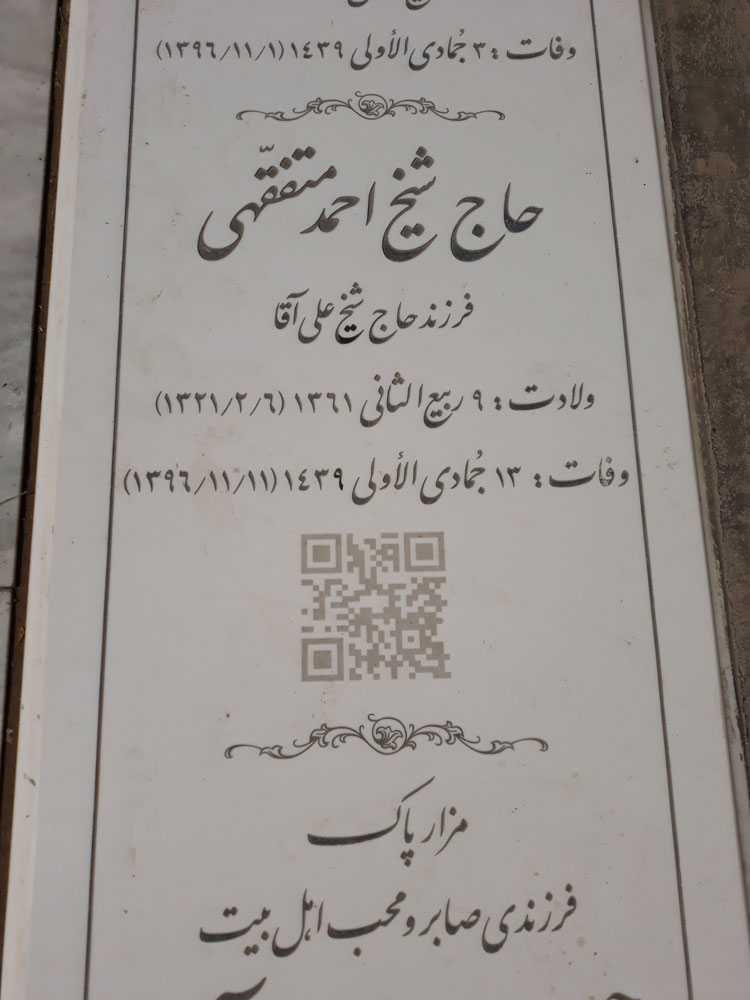 وفات : ۳ جُمادی الأولی ۱٤۳۹ (۱۳۹٦/۱۱/۱)
حاج شیخ احمد متفقّهی
فرزند حاج شیخ علی آقا
ولادت : ۹ ربیع الثانی ۱۳٦۱ (۱۳۲۱/۲/٦)
وفات : ۱۳ جُمادی الأولی ۱٤۳۹ (۱۳۹٦/۱۱/۱۱)
مزار پاک
فرزندی صابر و محب اهل بیت